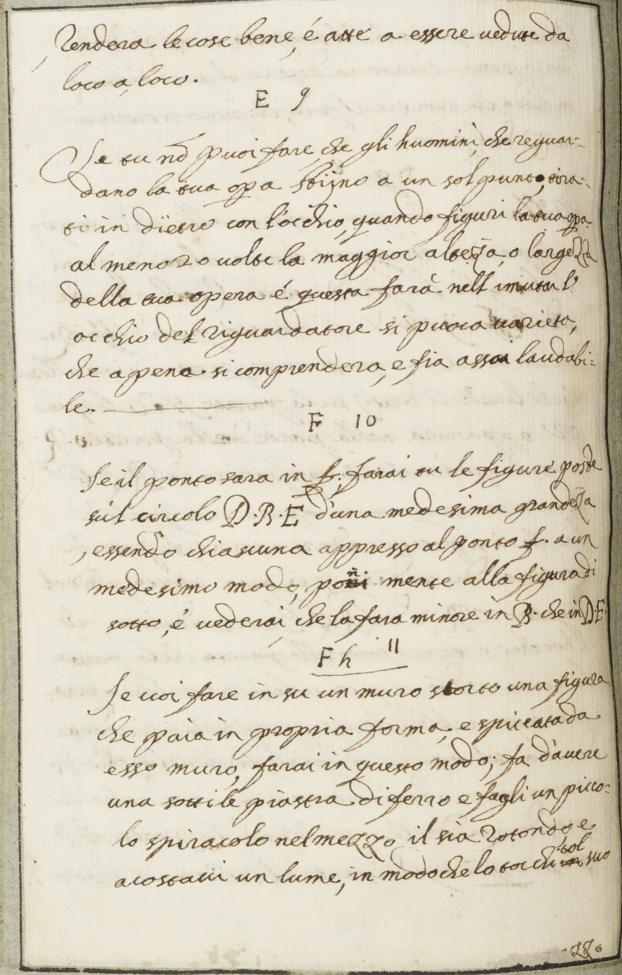 renderà le cose bene, é atte a essere vedute da
loco a loco.
E 9
Se tu nō puoi fare, che gli huomini, che reguar-
dano la tua opa stijno a un sol punto, tira-
ti in dietro con l'occhio, quando figuri la tua opa
al meno 20 volte la maggior altezza, o largezza
della tua opera é questa farà nell' imutar l'
occhio del riguardatore si puoca varieta,
che apena si comprendera, e fia assai laudabi-
le.
F 10
Se il ponto sara in f. farai tu le figure poste
sul circolo D.R.E d'una medesima grandezza
, essendo chiascuna appresso al ponto f. a un
medesimo modo, poni mente alla figura di
sotto, é vederai, che la fara minore in R. che in D.E.
F h 11
Se voi fare in su un muro storto una figura
che paia in propria forma, e spiccata da
esso muro, farai in questo modo; fa d'avere
una sottile piastra di ferro e fagli un picco-
lo spiracolo nel mezzo, il sia rotondo e
acostavi un lume, in modo che lo tocchi sol suo